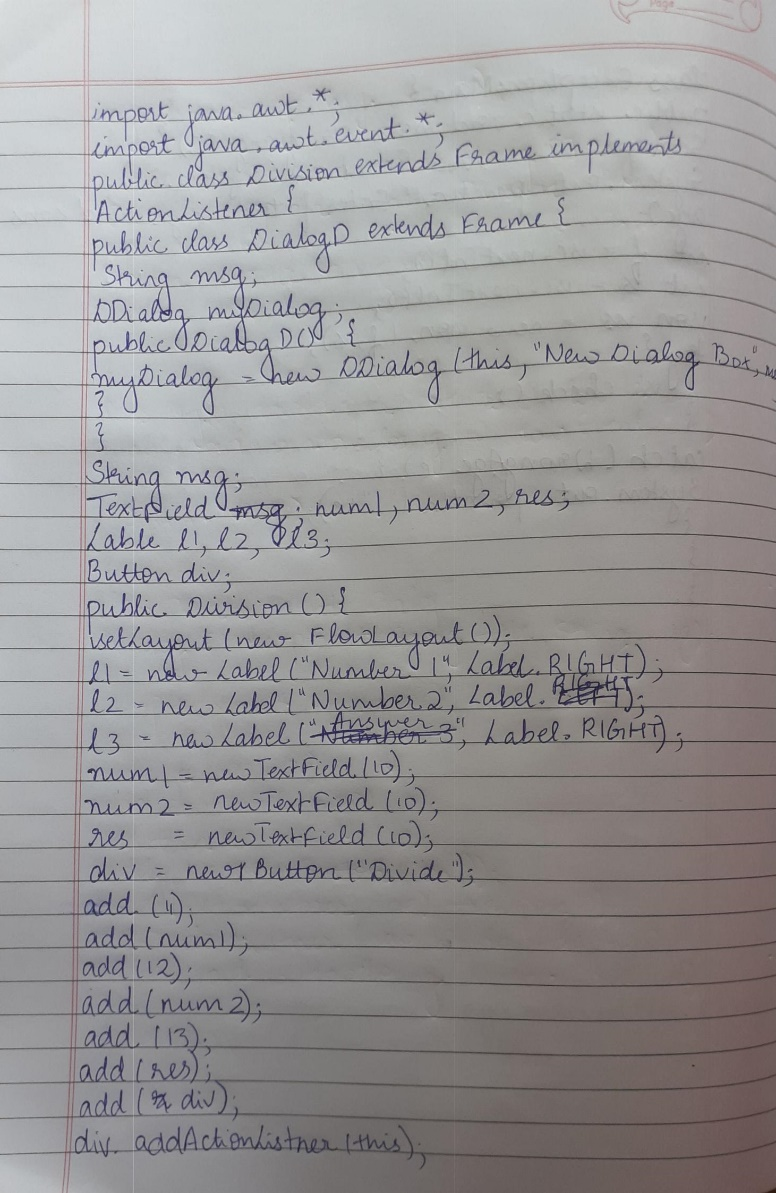 Page
import java.awt.*;
import java.awt.event.*;
public class Division extends Frame implements
ActionListener {
public class DialogD extends Frame {
String msg;
DDialog myDialog;
public DialogD() {
myDialog = new DDialog (this, "New Dialog Box",
}
}
String msg;
TextField num1, num2, res;
Lable l1, l2, l3;
Button div;
public Division () {
setLayout (new FlowLayout ());
l1 = new Label ("Number 1", Label.RIGHT);
l2 = new Label ("Number 2", Label.RIGHT);
l3 = new Label ("Answer", Label.RIGHT);
num1 = new TextField (10);
num2 = new TextField (10);
res = new TextField (10);
div = new Button ("Divide");
add (l1);
add (num1);
add (l2);
add (num2);
add (l3);
add (res);
add (div);
div. addActionListner (this);